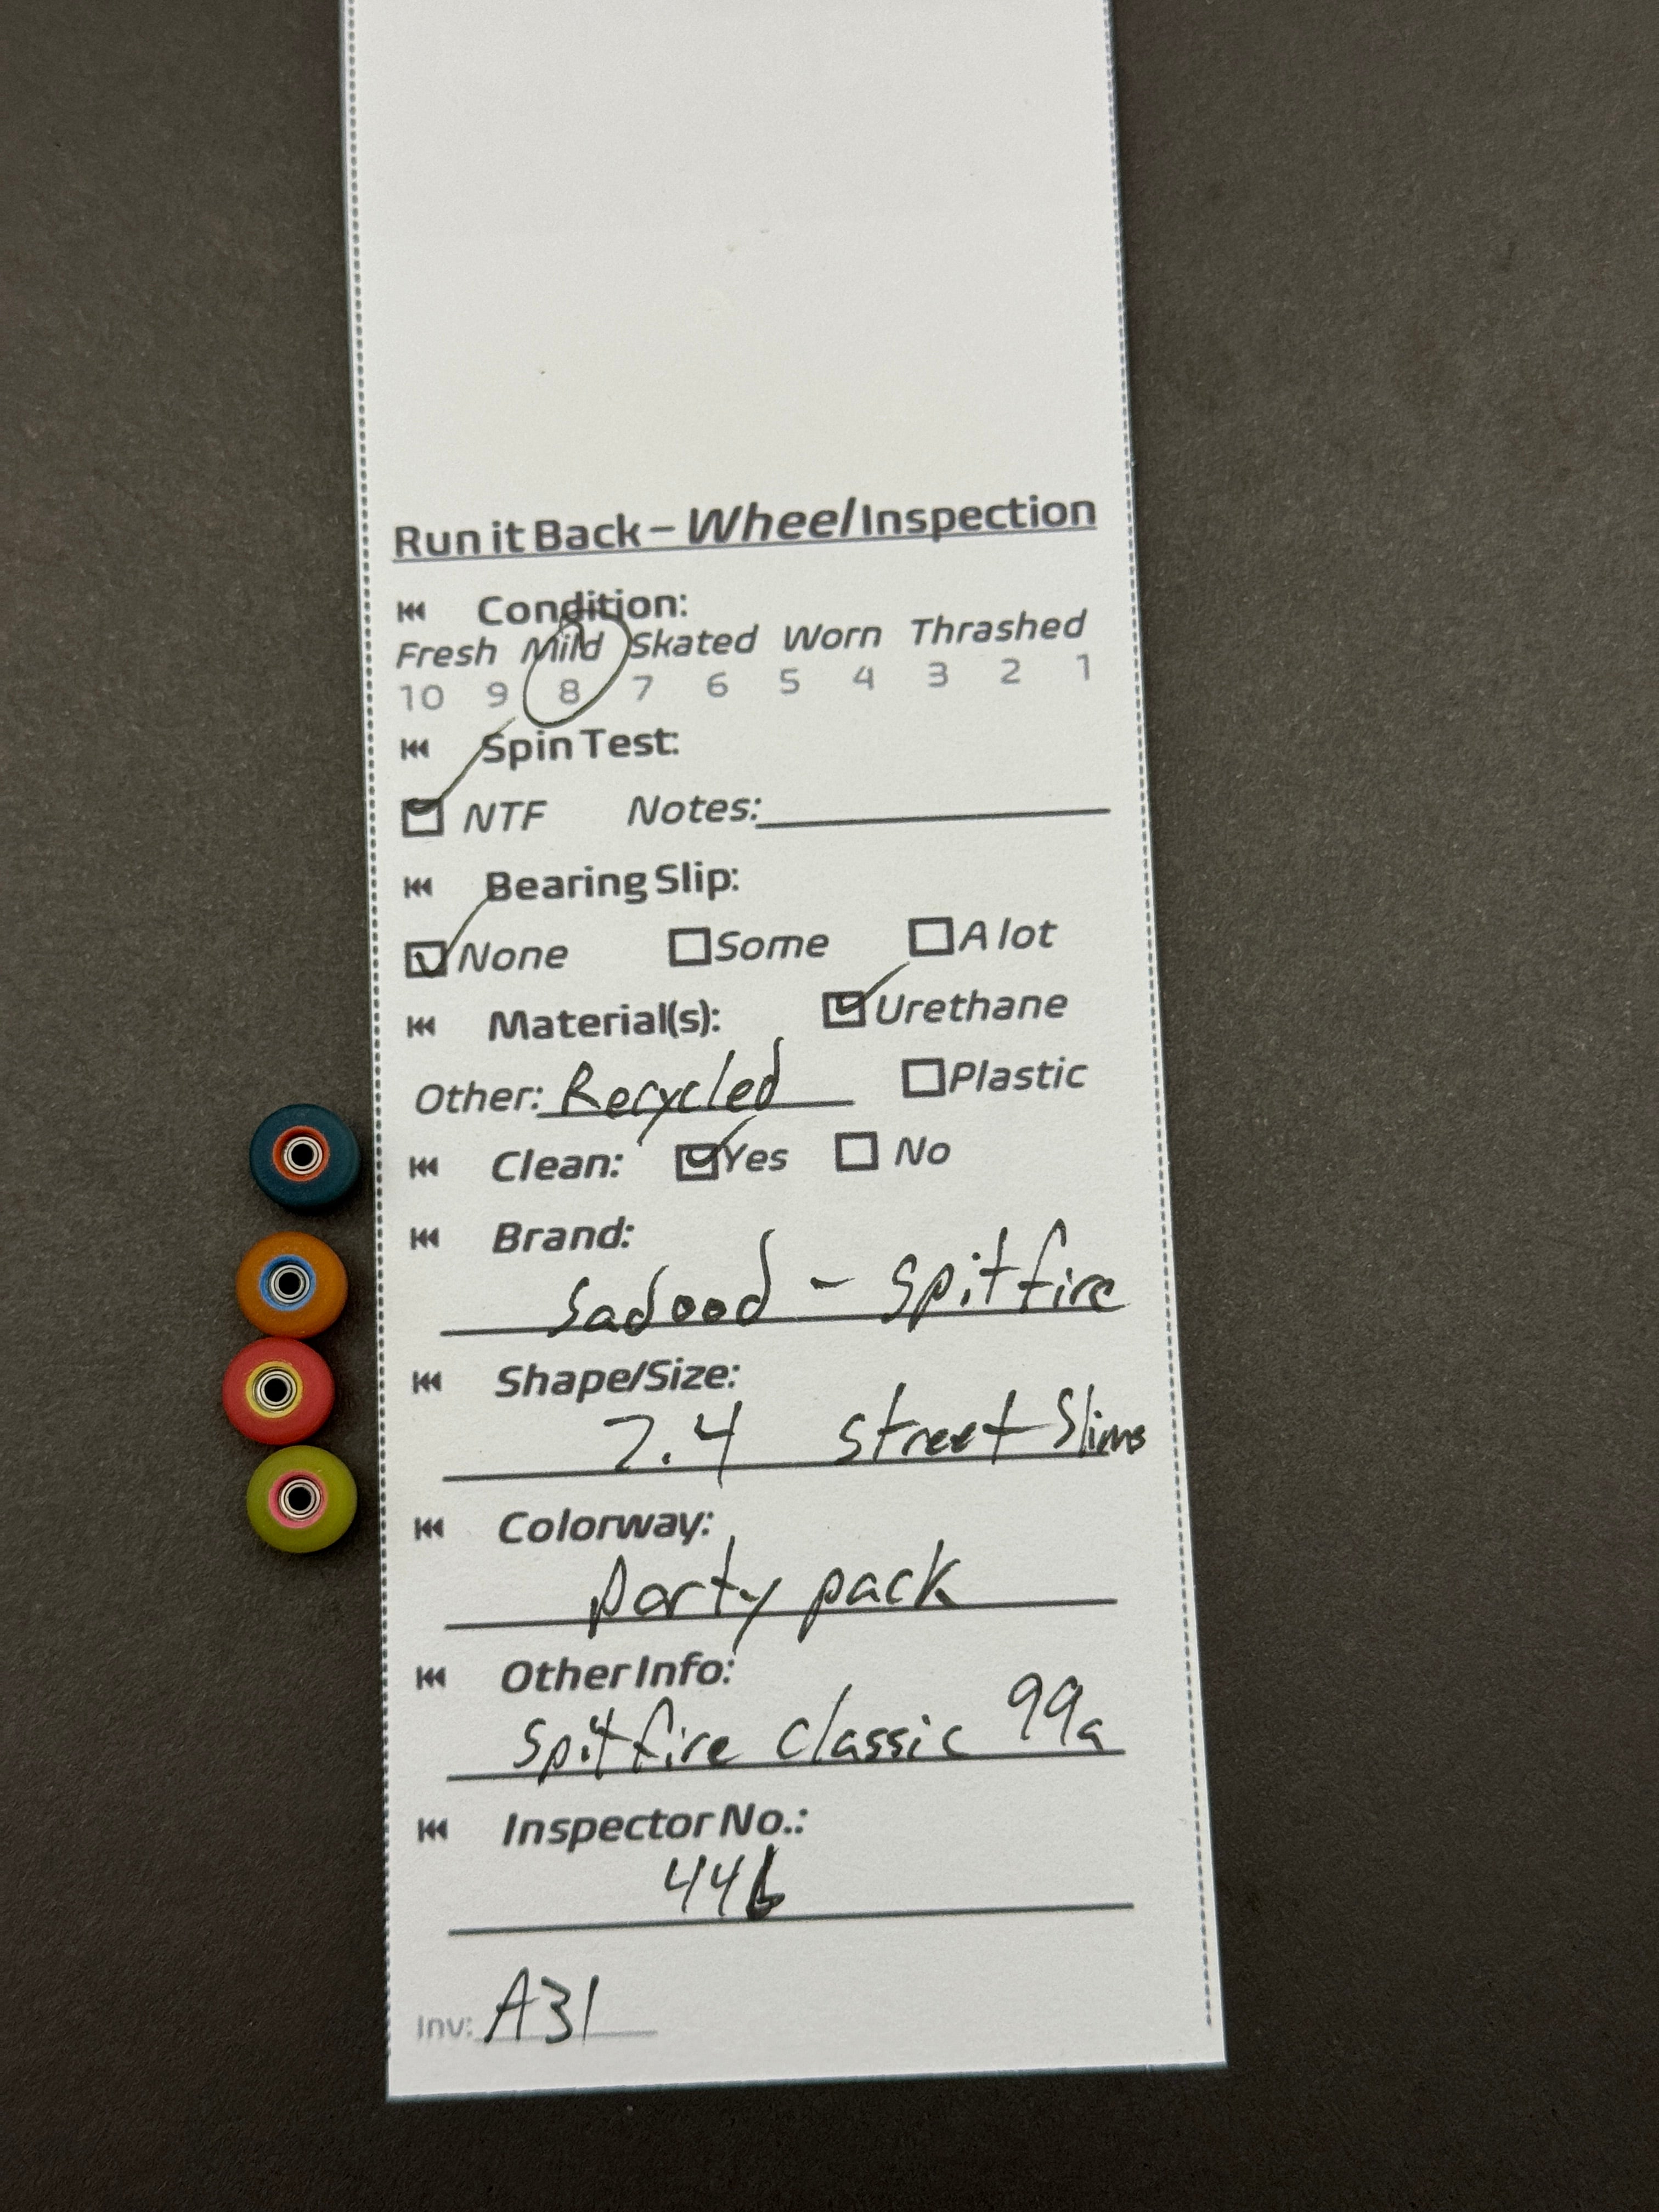 Run it Back – Wheel Inspection
Condition:
Fresh Mild Skated Worn Thrashed
10 9 8 7 6 5 4 3 2 1
Spin Test:
NTF Notes:
Bearing Slip:
None Some A lot
Material(s): Urethane
Other: Recycled Plastic
Clean: Yes No
Brand:
Sadood - Spitfire
Shape/Size:
7.4 Street Slims
Colorway:
party pack
Other Info:
Spitfire Classic 99a
Inspector No.:
446
Inv: A31